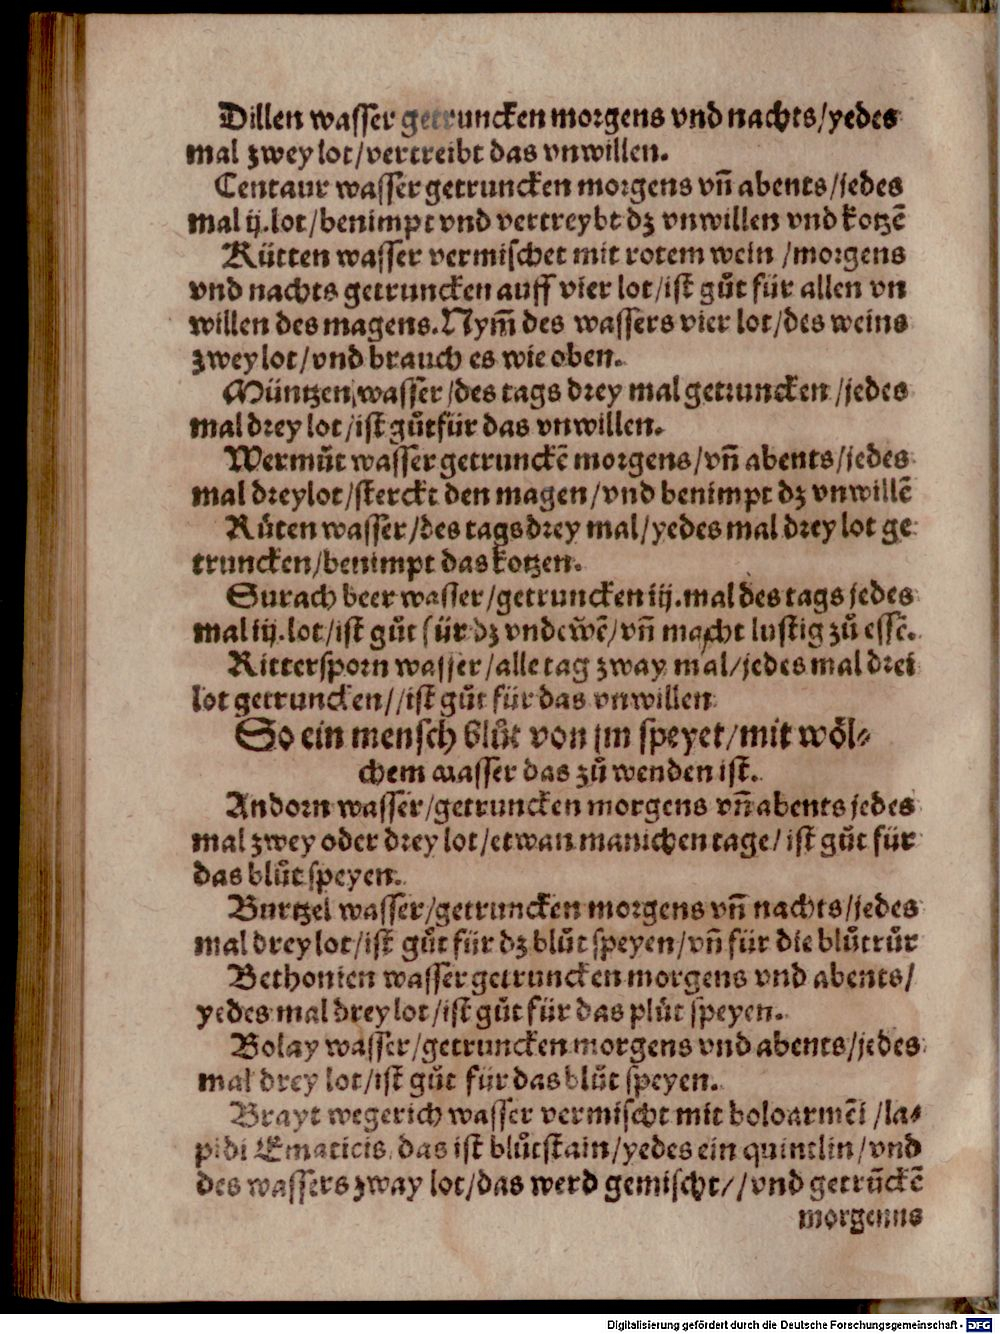 Dillen wasser getruncken morgens vnd nachts/yedes
mal zwey lot/vertreibt das vnwillen.
Centaur wasser getruncken morgens vñ abents/jedes
mal ij.lot/benimpt vnd vertreybt dz vnwillen vnd kotzē
Rütten wasser vermischet mit rotem wein /morgens
vnd nachts getruncken auff vier lot/ist gůt für allen vn
willen des magens.Nym̃ des wassers vier lot/des weins
zwey lot/vnd brauch es wie oben.
Müntzen wasser/des tags drey mal getruncken/jedes
mal drey lot/ist gůt für das vnwillen.
Wermůt wasser getrunckē morgens/vñ abents/jedes
mal drey lot/sterckt den magen/vnd benimpt dz vnwillē
Růten wasser/des tags drey mal/yedes mal drey lot ge
truncken/benimpt das kotzen.
Surach beer wasser/getruncken iij.mal des tags jedes
mal iij.lot/ist gůt für dz vndew̃ē/vñ macht lustig zů essē.
Rittersporn wasser/alle tag zway mal/jedes mal drei
lot getruncken//ist gůt für das vnwillen
So ein mensch blůt von jm speyet/mit wöl⸗
chem wasser das zů wenden ist.
Andorn wasser/getruncken morgens vñ abents jedes
mal zwey oder drey lot/etwan manichen tage/ist gůt für
das blůt speyen.
Burtzel wasser/getruncken morgens vñ nachts/jedes
mal drey lot/ist gůt für dz blůt speyen/vñ für die blůtrůr
Bethonien wasser getruncken morgens vnd abents/
yedes mal drey lot/ist gůt für das plůt speyen.
Bolay wasser/getruncken morgens vnd abents/jedes
mal drey lot/ist gůt für das blůt speyen.
Brayt wegerich wasser vermischt mit boloarmēi /la⸗
pidi Ematicis, das ist blůtstain/yedes ein quintlin/vnd
des wassers zway lot/das werd gemischt//vnd getrūckē
morgenns
Digitalisierung gefördert durch die Deutsche Forschungsgemeinschaft - DFG